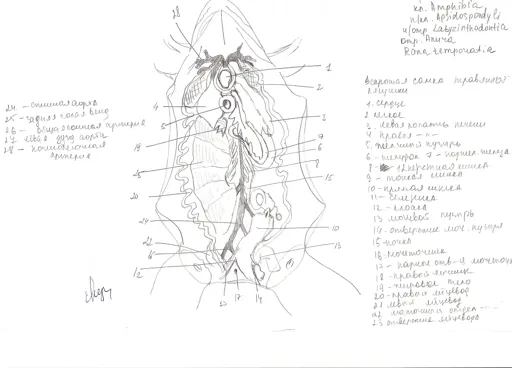 кл. Amphibia
п/кл. Apsidospondyli
н/отр. Labyrinthodontia
отр. Anura
Rana temporaria
Вскрытая самка травяной
лягушки
1. сердце
2 легкое
3. левая лопасть печени
4 правая - " -
5. желчный пузырь
6 - желудок 7 - поджел. железа
8 - 12перстная кишка
9 - тонкая кишка
10 - прямая кишка
11 - селезенка
12 - клоака
13 мочевой пузырь
14 - отверстие моч. пузыря
15 - почка
16 - мочеточник
17 - парное отв-е мочеточ
18 - правый яичник
19 - жировое тело
20 - правый яйцевод
21 левый яйцевод
22 маточный отдел - " -
23 отверстие яйцевода
24 - спинная аорта
25 - задняя полая вена
26 - общая артерия
27 левая дуга аорты
28 - артерия
28
1
2
3
4
5
6
7
8
15
18
20
10
13
12
17
14